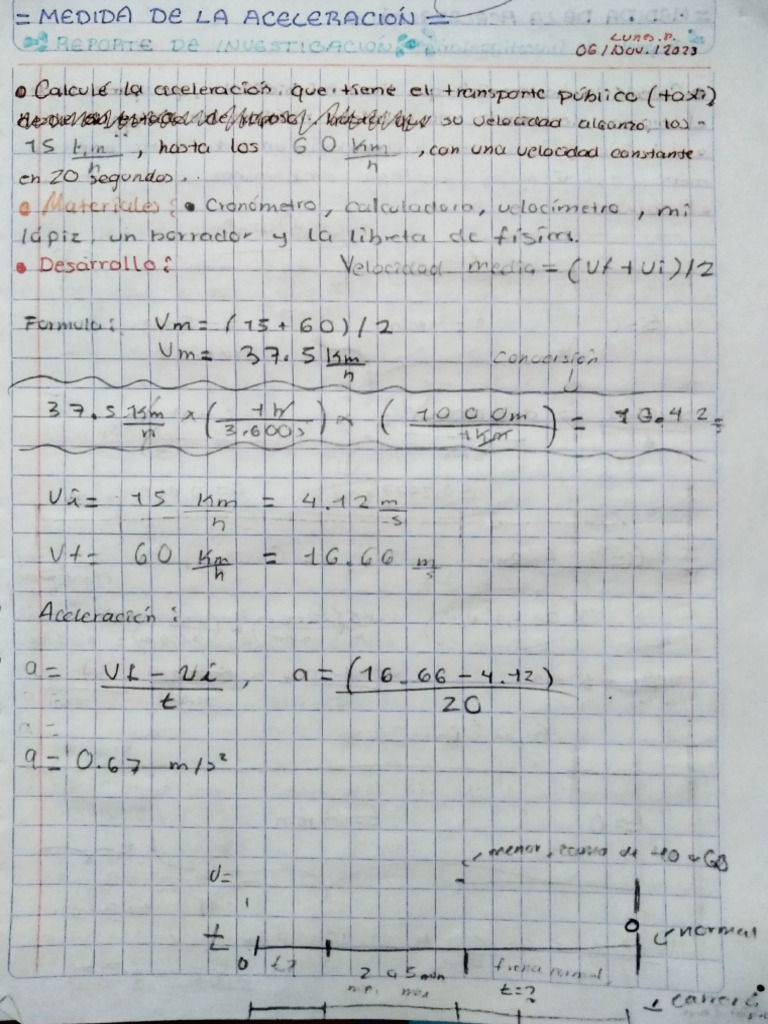 = MEDIDA DE LA ACELERACIÓN =
REPORTE DE INVESTIGACIÓN
LUNES.P.
06/NOV./2023
• Calculé la aceleración que tiene el transporte público (taxi)
su velocidad alcanzó los
15 km/h, hasta los 60 Km/h, con una velocidad constante
en 20 segundos.
• Materiales: • Cronómetro, calculadora, velocímetro, mi
lápiz, un borrador y la libreta de física.
• Desarrollo: Velocidad media = (Vf + Vi)/2
Formula: Vm = (15 + 60)/2
Vm = 37.5 Km/h
Conversión
37.5 Km/h × (1h/3.600s) × (1000m/1Km) = 10.42
Vi = 15 Km/h = 4.12 m/s
Vf = 60 Km/h = 16.66 m/s
Aceleración:
a = Vf - Vi / t, a = (16.66 - 4.12) / 20
a = 0.67 m/s²
menor, de 40 a 60
v=
t
normal
0 t?
2 a 5 min
normal
t=?
carrera